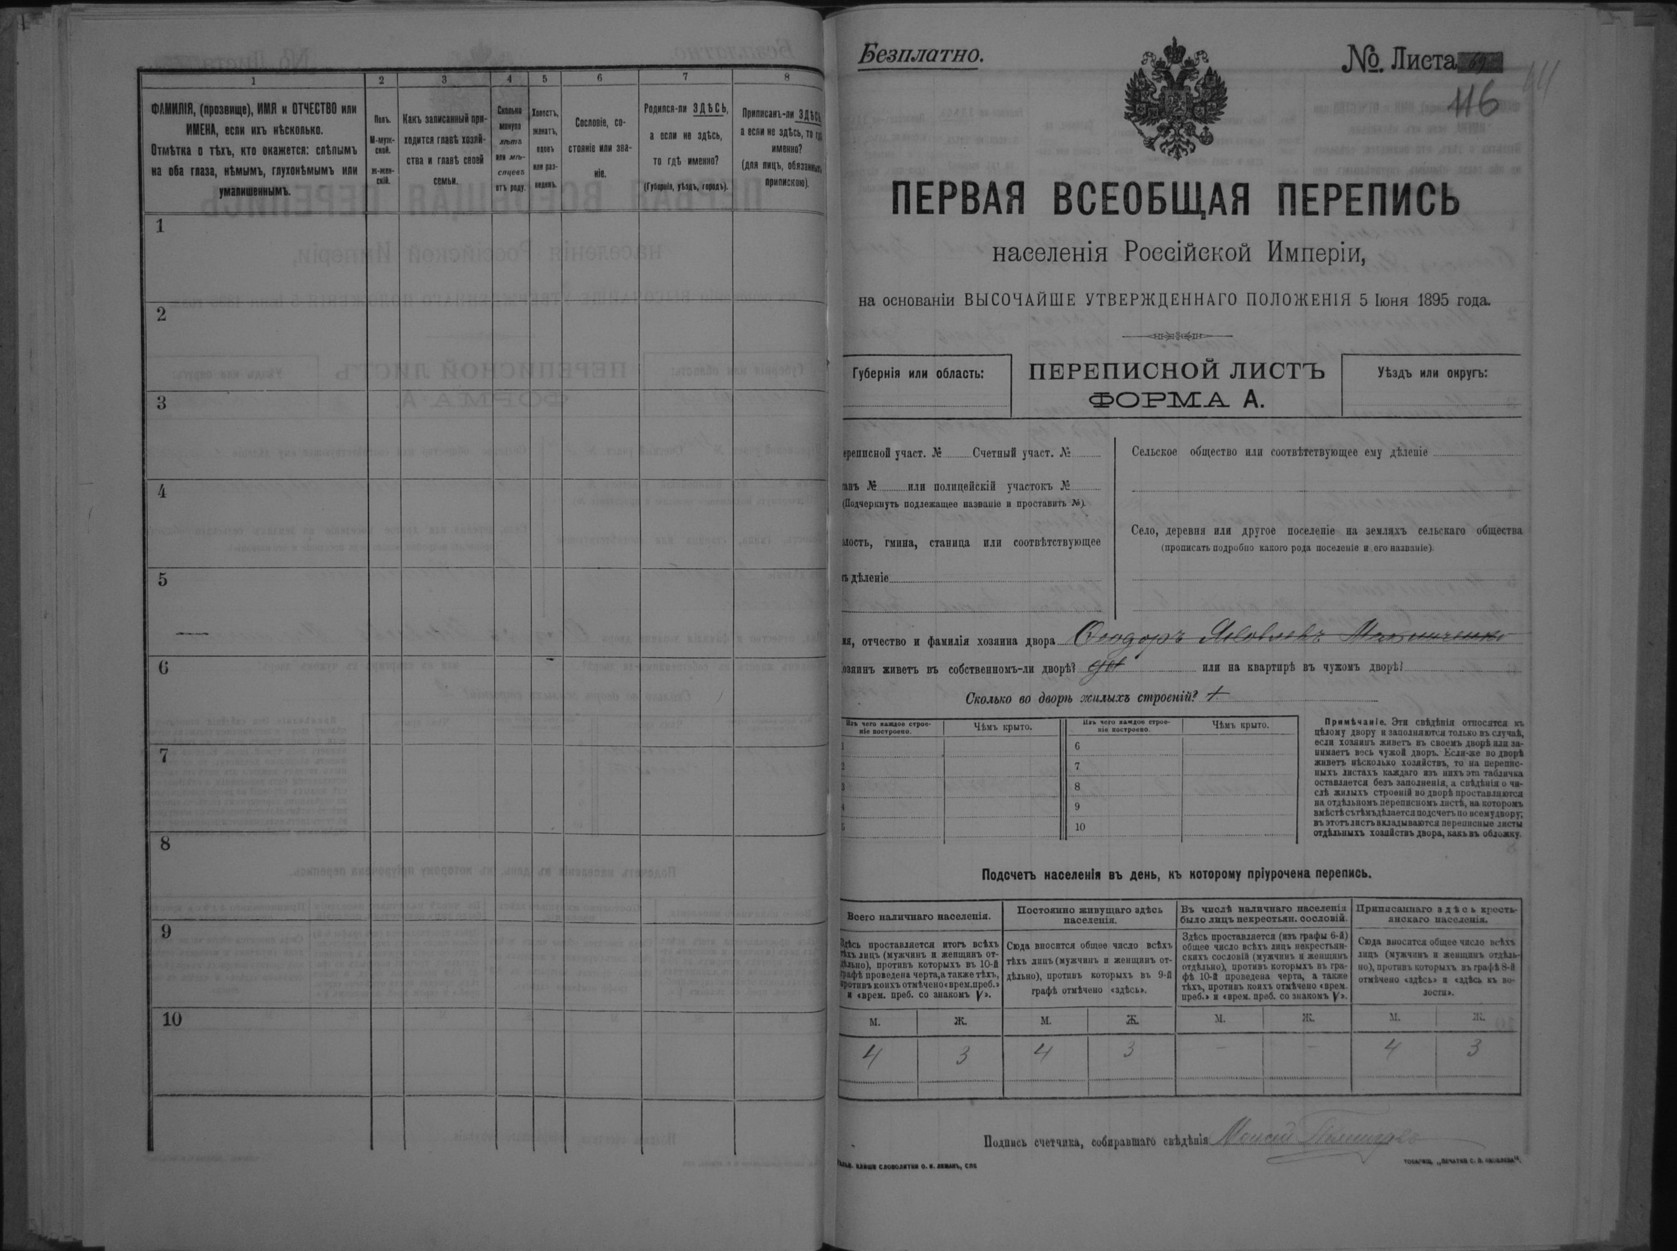 1 2 3 4 5 6 7 8
ФАМИЛІЯ, (прозвище), ИМЯ и ОТЧЕСТВО или
ИМЕНА, если ихъ нѣсколько.
Отмѣтка о тѣхъ, кто окажется: слѣпымъ
на оба глаза, нѣмымъ, глухонѣмымъ или
умалишеннымъ.
Полъ.
М-муж-
ской.
ж-жен-
скій.
Какъ записанный при-
ходится главѣ хозяй-
ства и главѣ своей
семьи.
Сколько
минуло
лѣтъ
или мѣ-
сяцевъ
отъ роду.
Холостъ,
женатъ,
вдовъ
или раз-
веденъ.
Сословіе, со-
стояніе или зва-
ніе.
Родился-ли ЗДѢСЬ,
а если не здѣсь,
то гдѣ именно?
(Губернія, уѣздъ, городъ).
Приписанъ-ли ЗДѢСЬ
а если не здѣсь, то гдѣ
именно?
(для лицъ, обязанныхъ
припискою).
1
2
3
4
5
6
7
8
9
10
Безплатно.
№ Листа
116
ПЕРВАЯ ВСЕОБЩАЯ ПЕРЕПИСЬ
населенія Россійской Имперіи,
на основаніи ВЫСОЧАЙШЕ УТВЕРЖДЕННАГО ПОЛОЖЕНІЯ 5 Іюня 1895 года.
Губернія или область:
ПЕРЕПИСНОЙ ЛИСТЪ
ФОРМА А.
Уѣздъ или округъ:
ереписной участ. № Счетный участ. №
анъ № или полицейскій участокъ №
(Подчеркнуть подлежащее названіе и проставить №).
лость, гмина, станица или соотвѣтствующее
ъ дѣленіе
Сельское общество или соотвѣтствующее ему дѣленіе
Село, деревня или другое поселеніе на земляхъ сельскаго общества
(прописать подробно какого рода поселеніе и его названіе).
мя, отчество и фамилія хозяина двора Ѳеодоръ Яковлевъ
озяинъ живетъ въ собственномъ-ли дворѣ? да или на квартирѣ въ чужомъ дворѣ?
Сколько во дворѣ жилыхъ строеній? 1
Изъ чего каждое строе-
ніе построено.
Чѣмъ крыто.
Изъ чего каждое строе-
ніе построено.
Чѣмъ крыто.
1 6
2 7
3 8
4 9
5 10
Примѣчаніе. Эти свѣдѣнія относятся къ
цѣлому двору и заполняются только въ случаѣ,
если хозяинъ живетъ въ своемъ дворѣ или за-
нимаетъ весь чужой дворъ. Если-же во дворѣ
живетъ нѣсколько хозяйствъ, то на перепис-
ныхъ листахъ каждаго изъ нихъ эта табличка
оставляется безъ заполненія, а свѣдѣнія о чи-
слѣ жилыхъ строеній во дворѣ проставляются
на отдѣльномъ переписномъ листѣ, на которомъ
вмѣстѣ съ тѣмъ дѣлается подсчетъ по всему двору;
въ этотъ листъ вкладываются переписные листы
отдѣльныхъ хозяйствъ двора, какъ въ обложку.
Подсчетъ населенія въ день, къ которому пріурочена перепись.
Всего наличнаго населенія.
Постоянно живущаго здѣсь
населенія.
Въ числѣ наличнаго населенія
было лицъ некрестьян. сословій.
Приписаннаго здѣсь кресть-
янскаго населенія.
Здѣсь проставляется итогъ всѣхъ
тѣхъ лицъ (мужчинъ и женщинъ от-
дѣльно), противъ которыхъ въ 10-й
графѣ проведена черта, а также тѣхъ,
противъ коихъ отмѣчено «врем. преб.»
и «врем. преб. со знакомъ V».
Сюда вносится общее число всѣхъ
тѣхъ лицъ (мужчинъ и женщинъ от-
дѣльно), противъ которыхъ въ 9-й
графѣ отмѣчено «здѣсь».
Здѣсь проставляется (изъ графы 6-й)
общее число всѣхъ лицъ некрестьян-
скихъ сословій (мужчинъ и женщинъ
отдѣльно), противъ которыхъ въ гра-
фѣ 10-й проведена черта, а также
тѣхъ, противъ коихъ отмѣчено «врем.
преб.» и «врем. преб. со знакомъ V».
Сюда вносится общее число всѣхъ
лицъ (мужчинъ и женщинъ отдѣль-
но), противъ которыхъ въ графѣ 8-й
отмѣчено «здѣсь» и «здѣсь къ во-
лости».
М. Ж. М. Ж. М. Ж. М. Ж.
4 3 4 3 - - 4 3
Подпись счетчика, собиравшаго свѣдѣнія